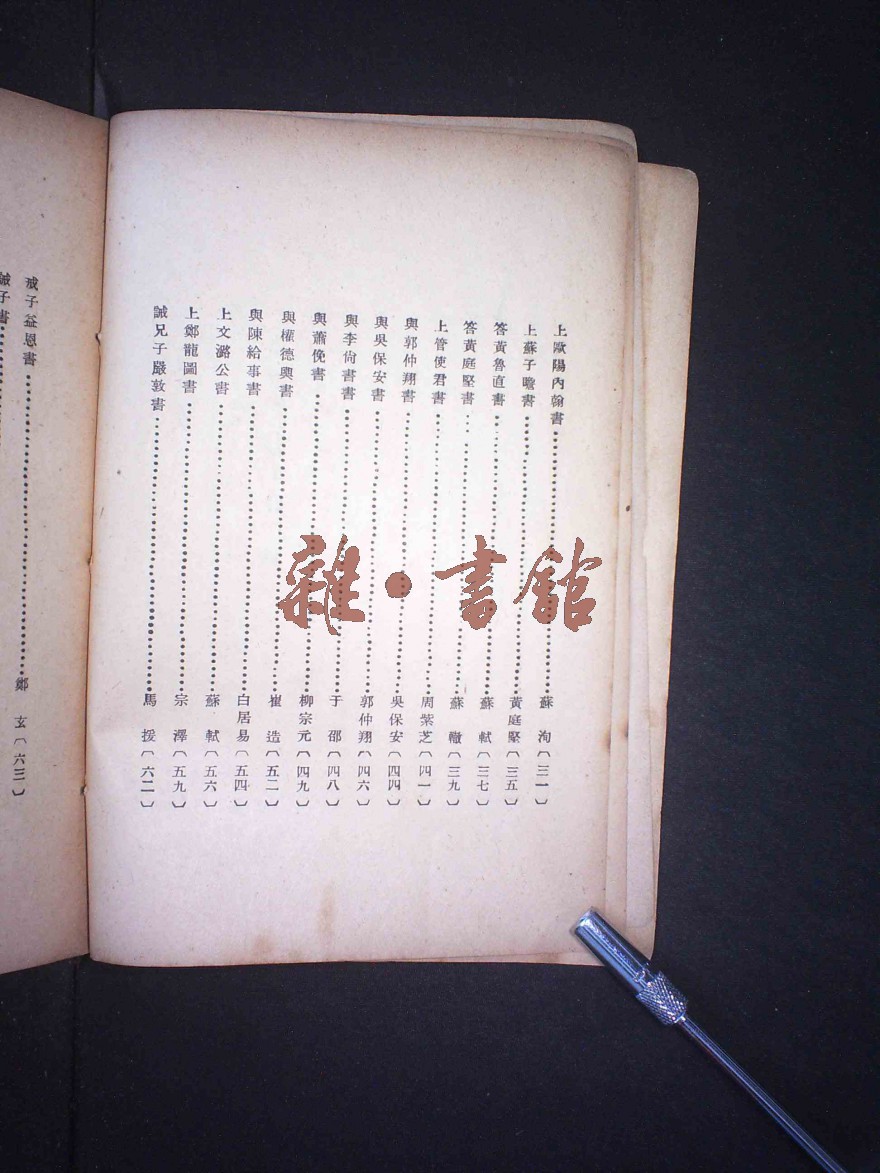 上歐陽內翰書 蘇洵〔三一〕
上蘇子瞻書 黃庭堅〔三五〕
答黃魯直書 蘇軾〔三七〕
答黃庭堅書 蘇轍〔三九〕
上管使君書 周紫芝〔四一〕
與郭仲翔書 吳保安〔四四〕
與吳保安書 郭仲翔〔四六〕
與李尙書書 于邵〔四八〕
與蕭俛書 柳宗元〔四九〕
與權德輿書 崔造〔五二〕
與陳給事書 白居易〔五四〕
上文潞公書 蘇軾〔五六〕
上鄭龍圖書 宗澤〔五九〕
誡兄子嚴敦書 馬援〔六二〕
戒子益恩書 鄭玄〔六三〕
誡子書
雜·書館